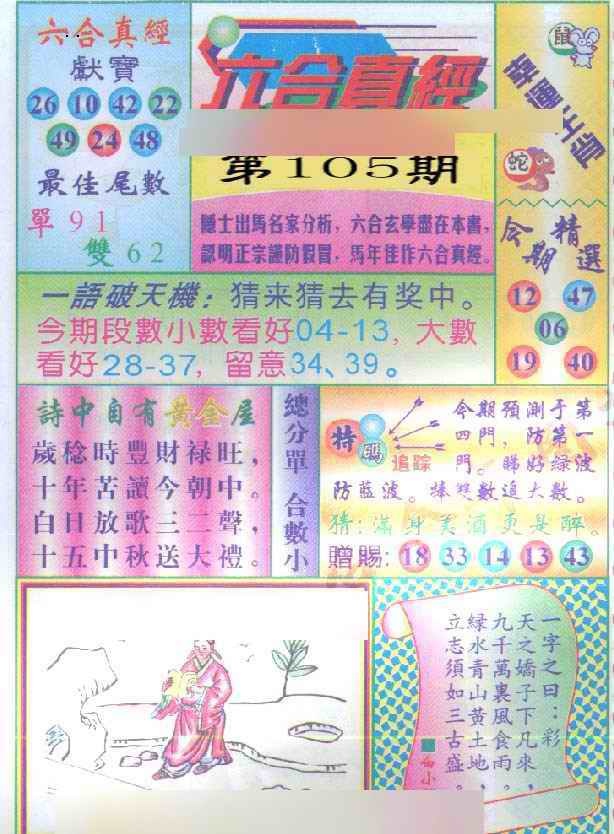 六合真經
獻寶
26 10 42 22
49 24 48
最佳尾數
單 9 1
雙 6 2
六合真經
第105期
隱士出馬名家分析,六合玄學盡在本書,
認明正宗謹防假冒,馬年佳作六合真經。
鼠
蛇
今期精選
12 47
06
19 40
一語破天機:猜来猜去有奖中。
今期段數小數看好04-13,大數
看好28-37,留意34、39。
詩中自有黃金屋
歲稔時豐財禄旺,
十年苦讀今朝中。
白日放歌三二聲,
十五中秋送大禮。
總分單 合數小
特碼
追踪
今期預測于第
四門,防第一
門。睇好緑波
防藍波。捧雙數追大數。
猜:滿身美酒更是醉。
贈賜:18 33 14 13 43
一字之曰:彩
天之嬌子下凡來,
九千萬裏風食雨。
緑水青山黃土地,
立志須如三古盛。